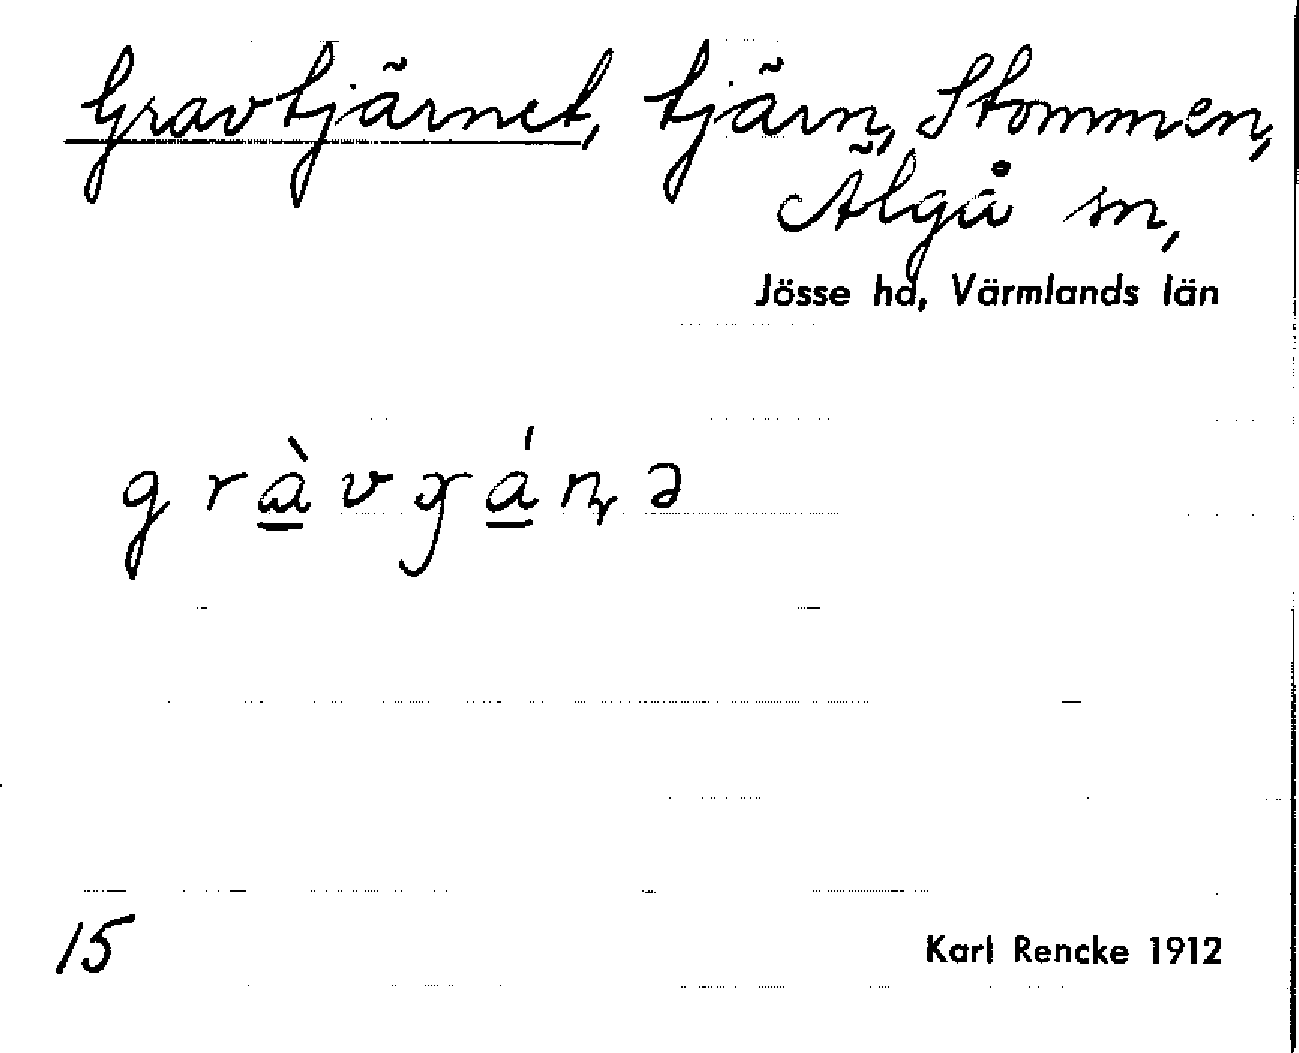 Gravtjärnet, tjärn, Stommen,
Älgå sn,
Jösse hd, Värmlands län
gràvɟáɳə
15
Karl Rencke 1912